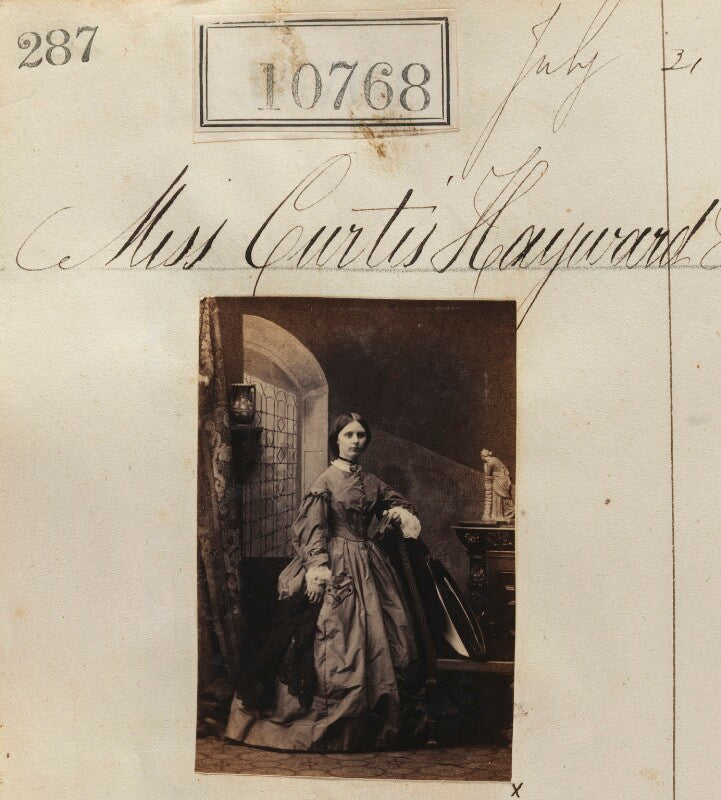 287
10768
July 21
Miss Curtis Hayward
x